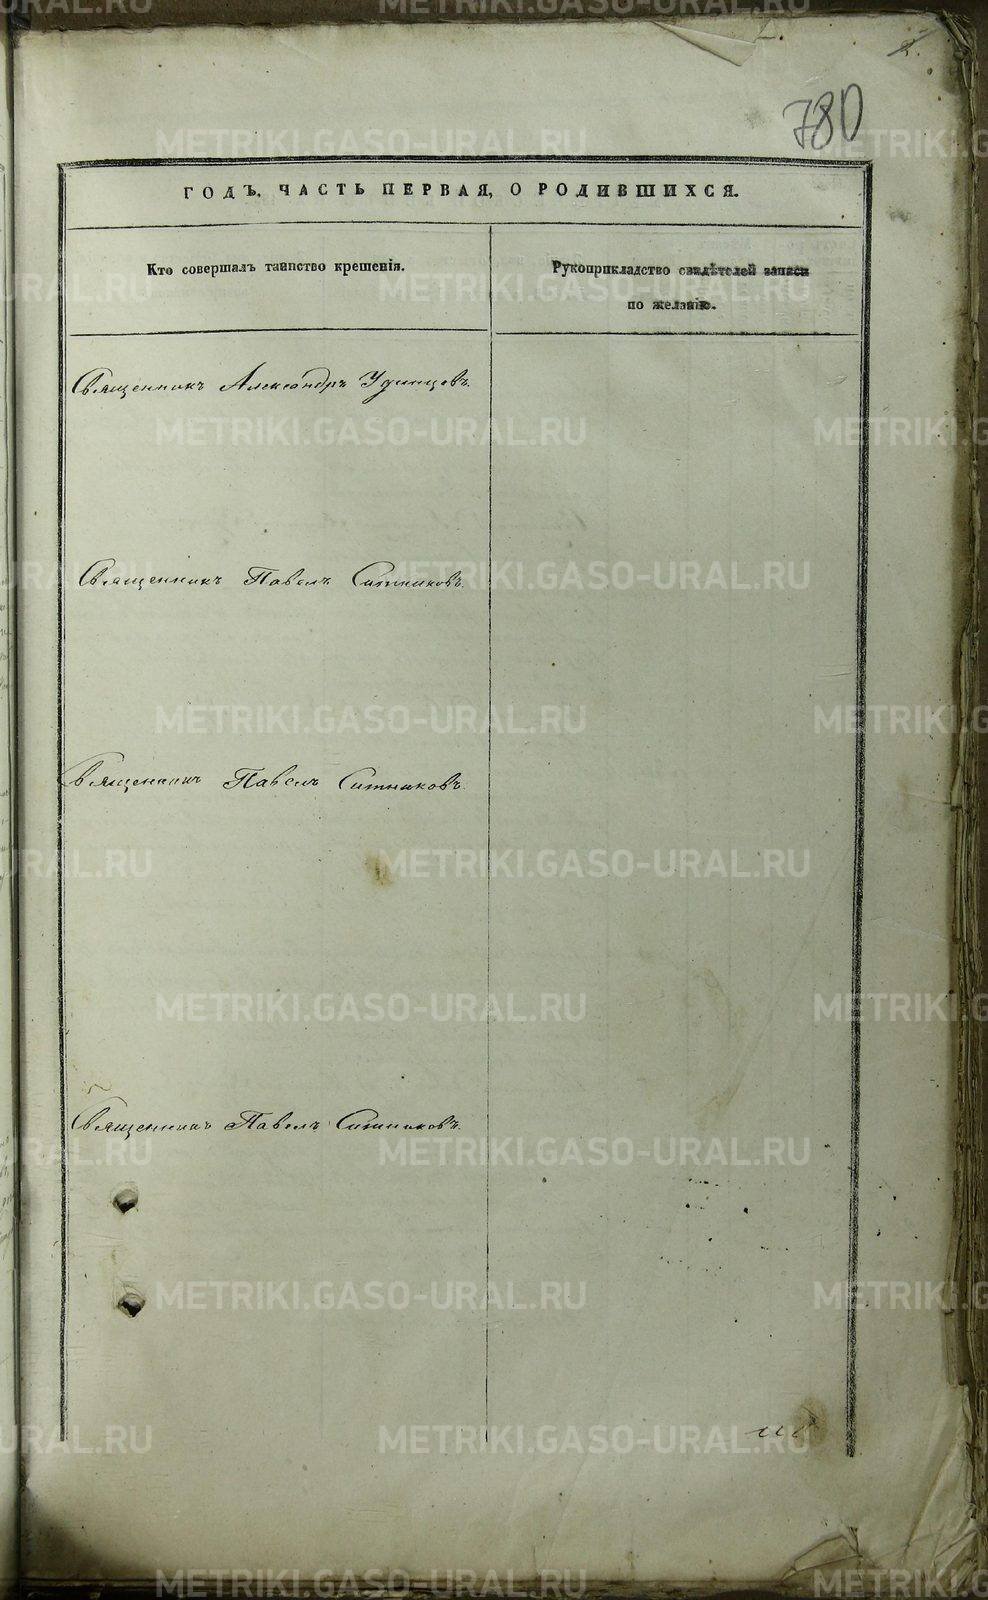 780
ГОДЪ. ЧАСТЬ ПЕРВАЯ, О РОДИВШИХСЯ.
Кто совершалъ таинство крещенія.
Рукоприкладство свидѣтелей записи
по желанію.
Священникъ Александръ Удинцевъ.
Священникъ Павелъ Ситниковъ.
Священникъ Павелъ Ситниковъ.
Священникъ Павелъ Ситниковъ.
METRIKI.GASO-URAL.RU